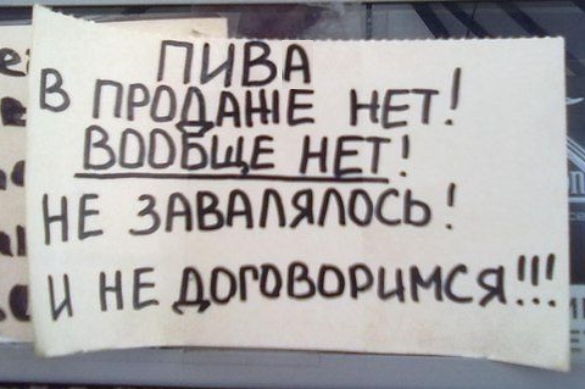 ПИВА
В ПРОДАЖЕ НЕТ!
ВООБЩЕ НЕТ!
НЕ ЗАВАЛЯЛОСЬ!
И НЕ ДОГОВОРИМСЯ!!!